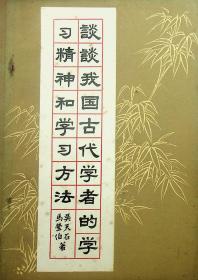 談談我国古代学者的学
习精神和学习方法
吴天石
馬瑩伯著